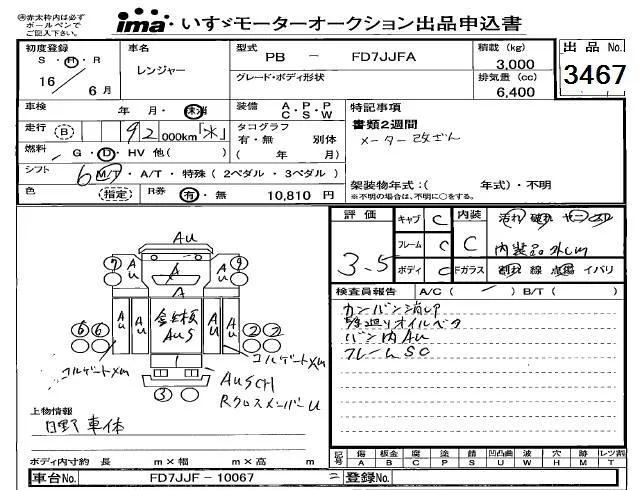 ㊟赤太枠内は必ず
ボールペンで
ご記入下さい。
ima いすゞモーターオークション出品申込書
初度登録
S・H・R
16 年 6 月
車名
レンジャー
型式
PB － FD7JJFA
グレード・ボディ形状
積載 (kg)
3,000
排気量 (cc)
6,400
出品 No.
3467
車検 年 月・抹消
装備 A・P・P
C S W
特記事項
書類2週間
メーター改ざん
走行 (B) 92 000km「水」
タコグラフ
有・無 別体
( 年 月)
燃料 G・D・HV 他( )
シフト 6 M/T・A/T・特殊(2ペダル・3ペダル)
架装物年式:( 年式)・不明
※不明の場合は、不明に○をする。
色 (指定) R券 有・無 10,810 円
評価 3.5
キャブ C
フレーム C
ボディ C
内装 C
Fガラス
汚れ 破れ ヤニ
内装品外し
割れ 線 点傷 イバリ
検査員報告 A/C( ) B/T( )
カンバン消し
バン内AU
フレームSC
AU
⑦ ⑨
A
A
AU
AU
AUS
⑥⑥
②②
コルゲートメm
コルゲートメm
③
AUSCH
RクロスメンバーU
上物情報
日野車体
ボディ内寸約 長 m×幅 m×高 m
記号
傷 板金 腐 塗 錆 凹凸曲 波 穴 跡 レツ割
A B C P S U W H M T
車台No. FD7JJF-10067
登録No.